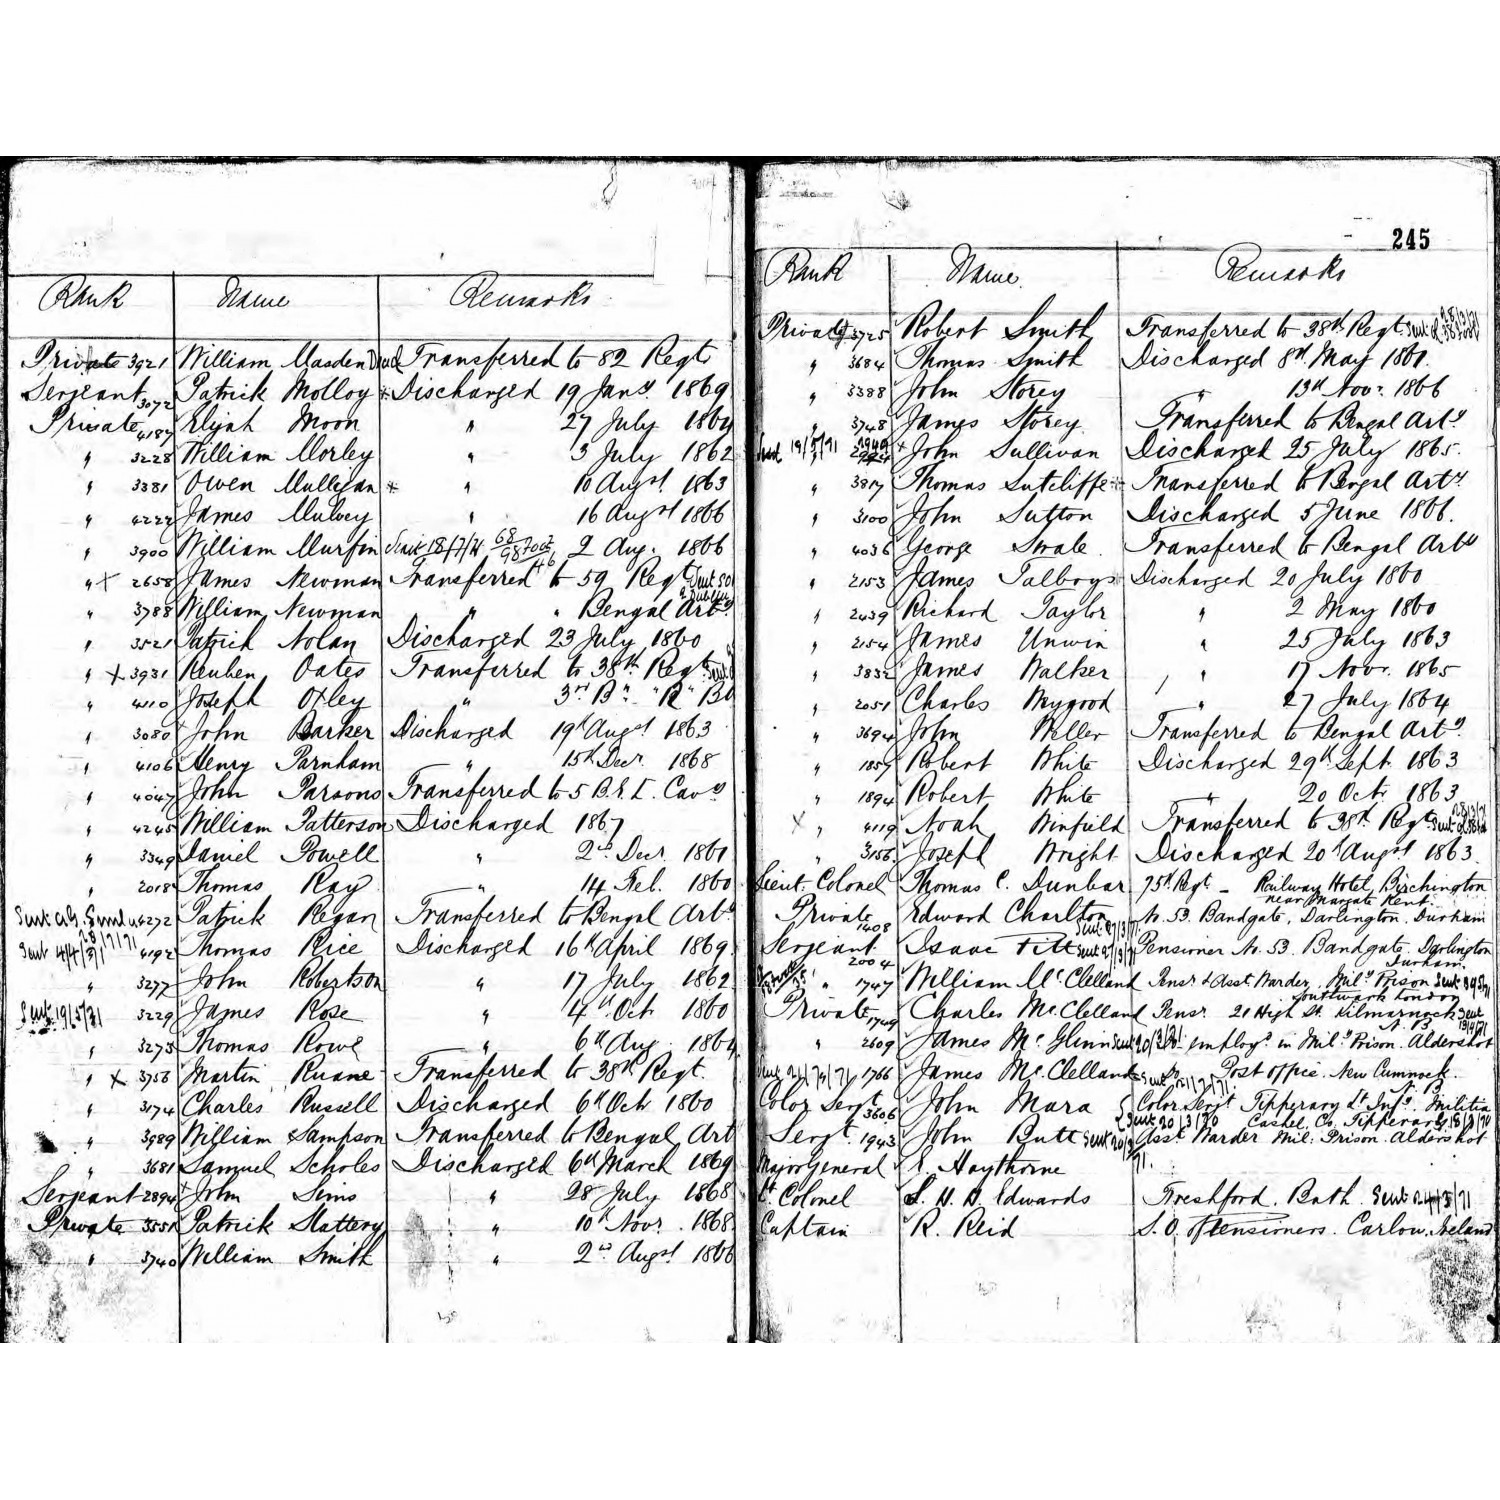 Rank Name Remarks
Private 3921 William Masden Dead Transferred to 82 Regt
Sergeant 3072 Patrick Molloy + Discharged 19 Jany 1869
Private 4187 Elijah Moon " 27 July 1864
" 3228 William Morley " 3 July 1862
" 3381 Owen Mulligan + " 10 Augst 1863
" 4222 James Mulvey " 16 Augst 1866
" 3900 William Murfin Sent 18/7/71 2 Aug. 1866
" X 2658 James Newman Transferred to 59 Regt
" 3788 William Newman " " Bengal Arty
" 3521 Patrick Nolan Discharged 23 July 1860
" X 3931 Reuben Oates Transferred to 38th Regt
" 4110 Joseph Oxley " 3rd Bn "R" B
" 3080 John Barker Discharged 19th Augst 1863
" 4106 Henry Parnham " 15th Decr. 1868
" 4047 John Parsons Transferred to 5 B.E.L. Cavy
" 4245 William Patterson Discharged 1867
" 3349 Daniel Powell " 2nd Decr. 1861
" 2018 Thomas Ray " 14 Feb. 1860
4272 Patrick Regan Transferred to Bengal Arty
Sent 4192 Thomas Rice Discharged 16th April 1869
" 3277 John Robertson " 17 July 1862
Sent 19/5/71 3229 James Rose " 4th Oct 1860
" 3273 Thomas Rowe " 6th Aug 1864
" X 3756 Martin Ruane Transferred to 38th Regt.
" 3174 Charles Russell Discharged 6th Octr 1860
" 3989 William Sampson Transferred to Bengal Art
" 3681 Samuel Scholes Discharged 6th March 1869
Sergeant 2894 John Sims " 28 July 1868
Private 3551 Patrick Slattery " 10th Novr. 1868
" 3740 William Smith " 2nd Augst 1866
245
Rank Name Remarks
Private 3725 Robert Smith Transferred to 38th Regt
" 3684 Thomas Smith Discharged 8th May 1861.
" 3388 John Storey " 13th Novr. 1866
" 3748 James Storey Transferred to Bengal Arty
Sent 19/5/71 + John Sullivan Discharged 25 July 1865.
" 3817 Thomas Sutcliffe + Transferred to Bengal Arty
" 3100 John Sutton Discharged 5 June 1866.
" 4036 George Swale Transferred to Bengal Arty
" 2153 James Talboys + Discharged 20 July 1860
" 2439 Richard Taylor " 2 May 1860
" 2154 James Unwin " 25 July 1863
" 3832 James Walker " 17 Novr. 1865
" 2051 Charles Waygood " 27 July 1864
" 3694 John Weller Transferred to Bengal Arty
" 1857 Robert White Discharged 29th Sept. 1863
" 1894 Robert White " 20 Oct. 1863
X " 4119 Noah Winfield Transferred to 38th Regt
" 3156 Joseph Wright Discharged 20th Augst 1863.
Lieut. Colonel Thomas C. Dunbar 75th Regt - Railway Hotel, Birchington
near Margate Kent.
Private 1408 Edward Charlton No. 53. Bandgate, Darlington. Durham
Sergeant 2004 Isaac Pitt Pensioner No. 53. Bandgate. Darlington
Durham.
" 1747 William McClelland Pensr & Asst Warder, Mily Prison
Southwark London
Private 1749 Charles McClelland Pensr 21 High St. Kilmarnock Sent
N.B. 13/4/71
" 2609 James McGlinn Sent 20/3/71 employd in Mily Prison. Aldershot
1766 James McClelland Do Post office. New Cumnock.
N.B.
Color Sergt. 3606 John Mara Color Sergt Tipperary Lt Infy. Militia
Sent 20/3/70 Cashel, Co. Tipperary
Sergt. 1943 John Butt Asst Warder Mil: Prison. Aldershot
Major General E. Haythorne
Lt. Colonel S. H. H. Edwards Freshford. Bath. Sent 24/3/71
Captain R. Reid S.O. of Pensioners. Carlow. Ireland